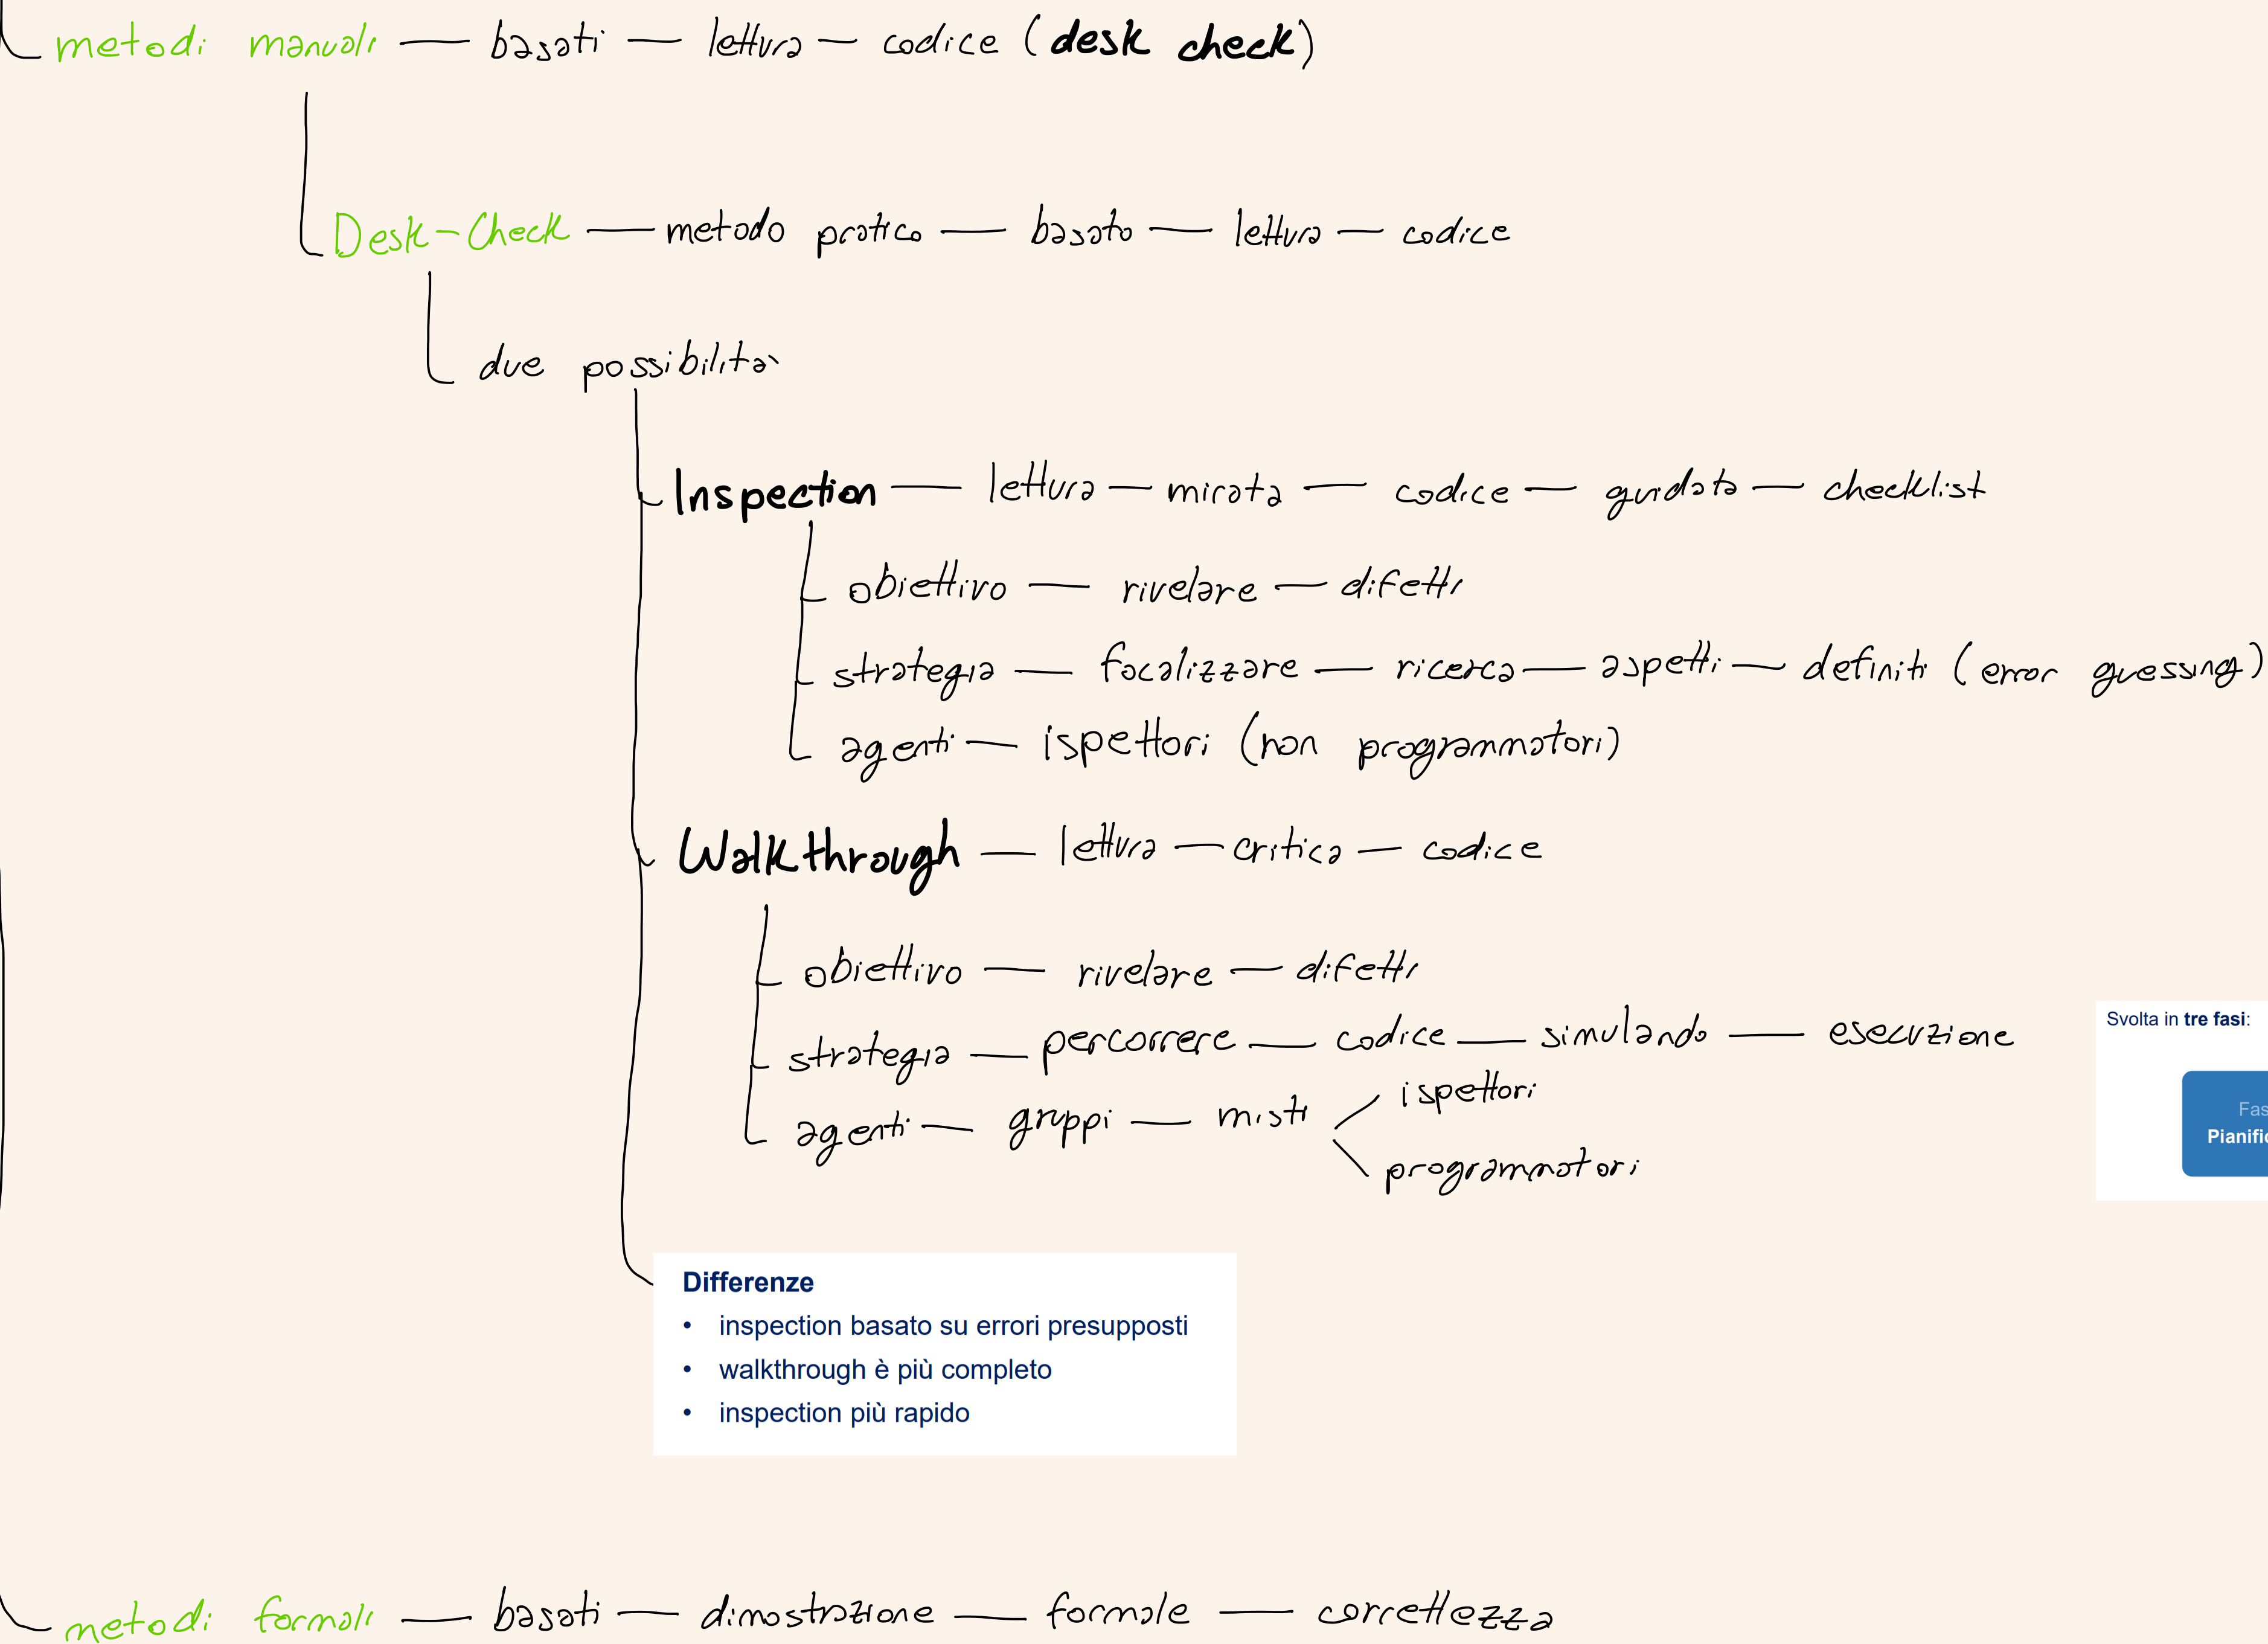 metodi manuali — basati — lettura — codice (desk check)
Desk-Check — metodo pratico — basato — lettura — codice
due possibilità
Inspection — lettura — mirata — codice — guidata — checklist
obiettivo — rivelare — difetti
strategia — focalizzare — ricerca — aspetti — definiti (error guessing)
agenti — ispettori (non programmatori)
Walkthrough — lettura — critica — codice
obiettivo — rivelare — difetti
strategia — percorrere — codice — simulando — esecuzione
agenti — gruppi — misti
ispettori
programmatori
Svolta in tre fasi:
Fas
Pianific
Differenze
• inspection basato su errori presupposti
• walkthrough è più completo
• inspection più rapido
metodi formali — basati — dimostrazione — formale — correttezza